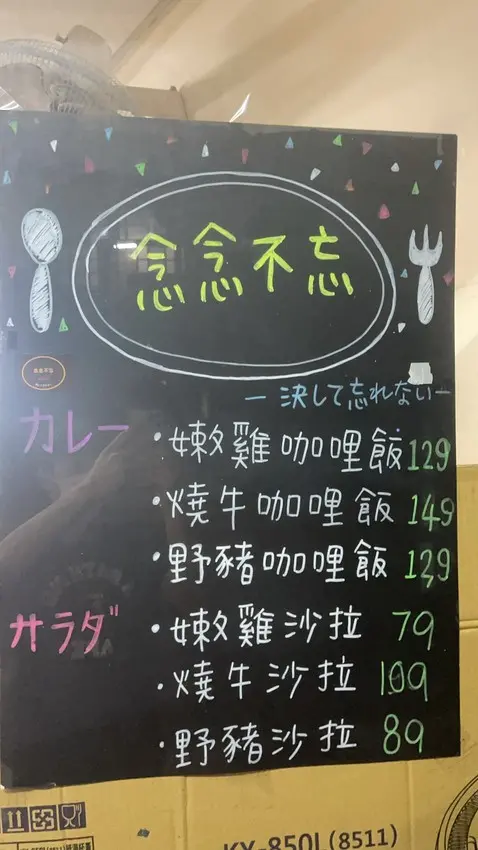 念念不忘
念念不忘
ー 決して忘れない ー
カレー
・嫩雞咖哩飯 129
・燒牛咖哩飯 149
・野豬咖哩飯 139
サラダ
・嫩雞沙拉 79
・燒牛沙拉 109
・野豬沙拉 89
KY-850L (8511)